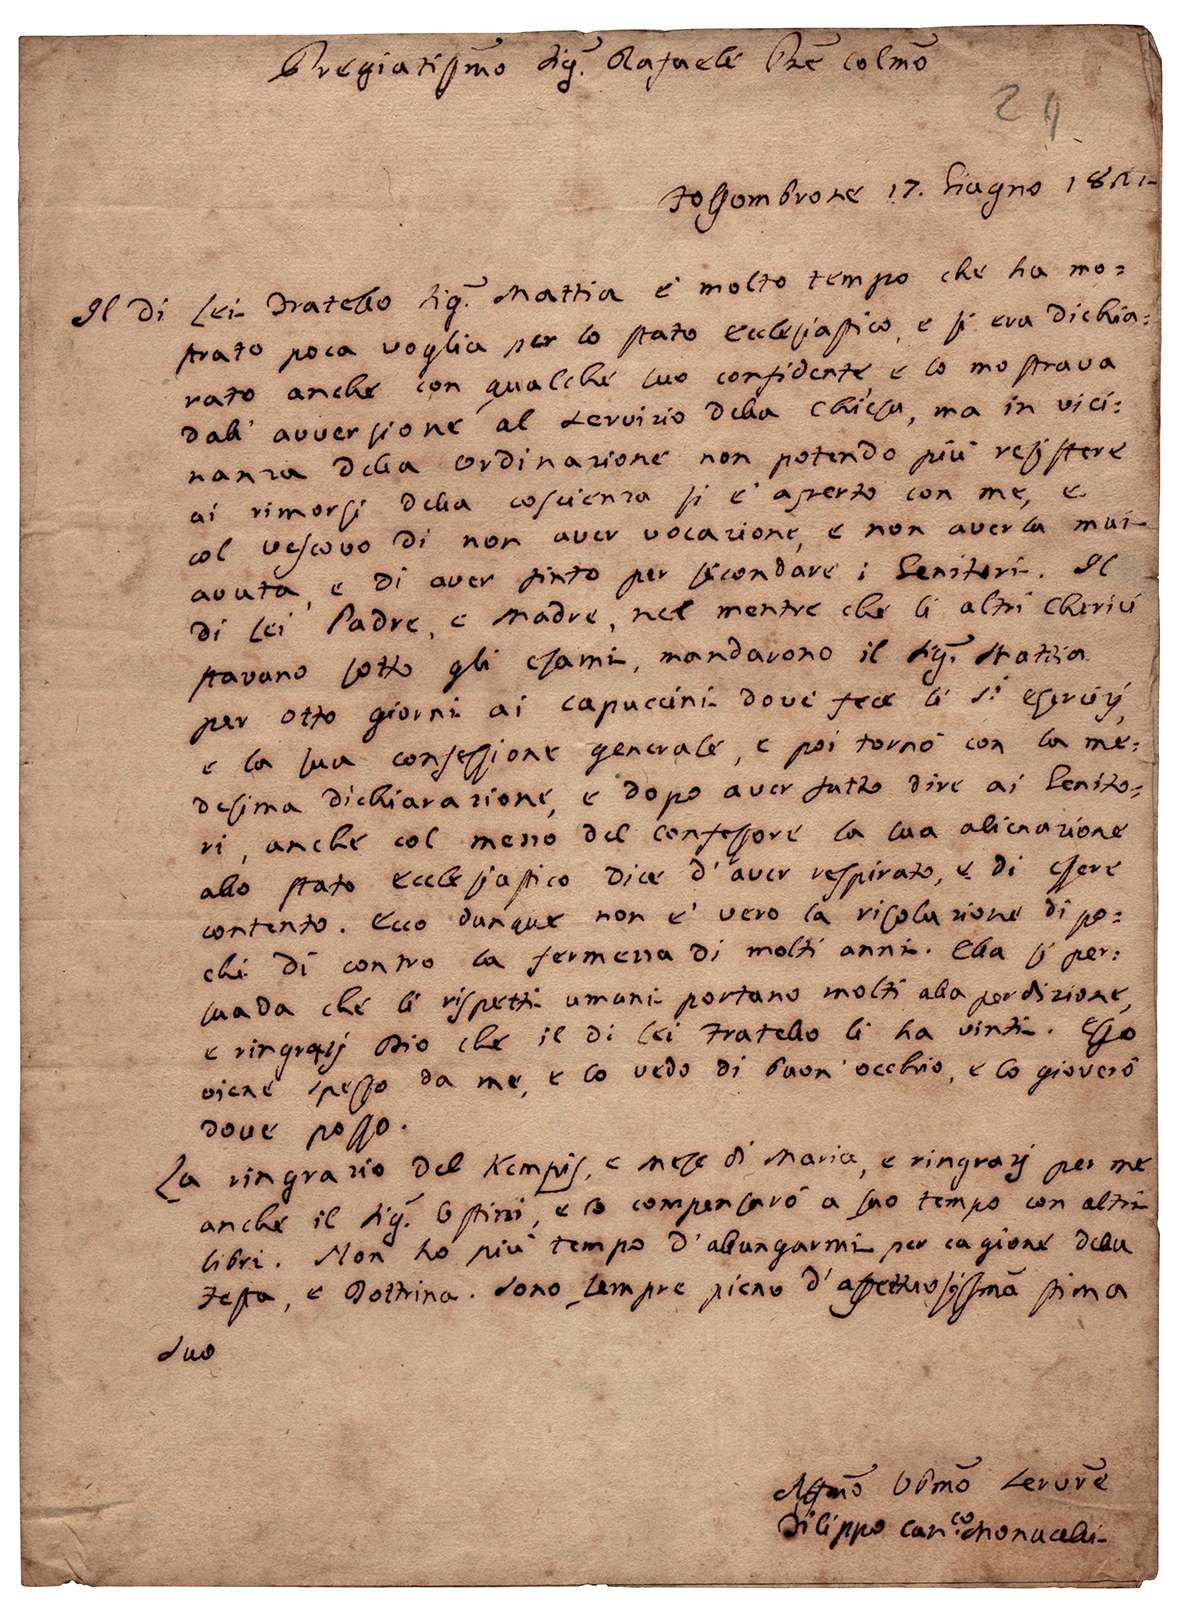 Pregiatissmo Sig.r Rafaele Pne Colmo
24
Fossombrone 17. Giugno 18
Il di Lei Fratello Sig.r Mattia è molto tempo che ha mo=
strato poca voglia per lo stato Ecclesiastico, e si era dichia=
rato anche con qualche suo confidente, e lo mostrava
dall' avversione al servizio della Chiesa, ma in vici=
nanza della Ordinazione non potendo più resistere
ai rimorsi della coscienza si è aperto con me, e
col Vescovo di non aver vocazione, e non averla mai
avuta, e di aver finto per secondare i Genitori. Il
di Lei Padre, e Madre, nel mentre che li altri Cherici
stavano sotto gli Esami, mandarono il Sig.r Mattia
per otto giorni ai Capuccini dove fece li S.i Esercizj,
e la sua confessione generale, e poi tornò con la me=
desima dichiarazione, e dopo aver fatto dire ai Genito=
ri, anche col mezzo del confessore la sua alienazione
allo stato Ecclesiastico dice d'aver respirato, e di essere
contento. Ecco dunque non è vero la risoluzione di po=
chi dì contro la fermezza di molti anni. Ella si per=
suada che li rispetti umani portano molti alla perdizione,
e ringrazj Dio che il di Lei Fratello li ha vinti. Esso
viene spesso da me, e lo vedo di buon' occhio, e lo gioverò
dove posso.
La ringrazio del Kempis, e Mese di Maria, e ringrazj per me
anche il Sig.r Ostini, e lo compenserò a suo tempo con altri
libri. Non ho più tempo d'allungarmi per cagione della
Festa, e Dottrina. Sono sempre pieno d'affettuosissma stima
Suo
Affmo Obmo Servre
Filippo Can.co Monacelli